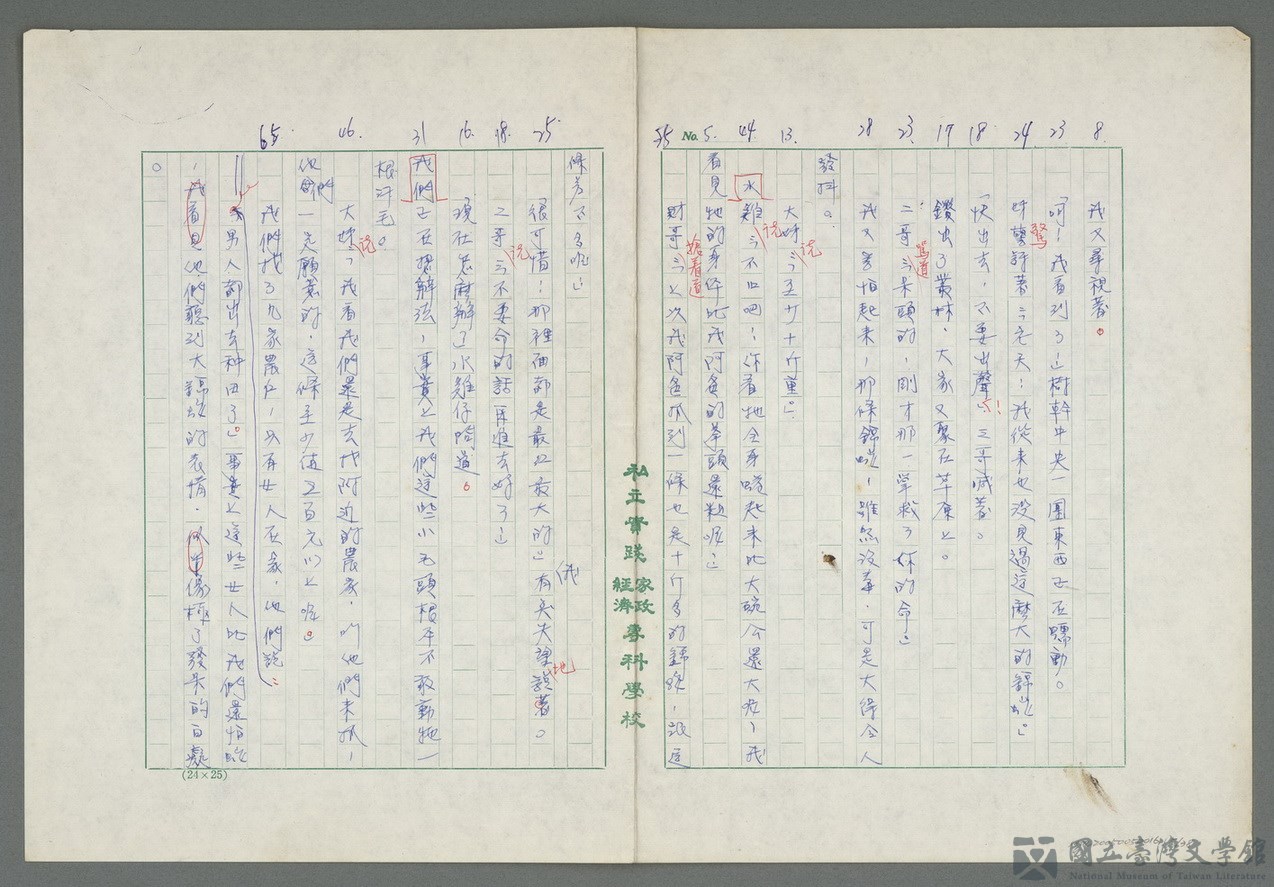 8. 23 24 18. 17 23. 28 13. 44 No. 5. 35
我又尋視著。
「呵!我看到了」樹幹中央一團東西正在蠕動。
驚
妹驚訝著:「老天!我從來也沒見過這麼大的錦蛇」
「快出去,不要出聲」三哥喊著。
鑽出了叢林,大家又聚在草原上。
罵道
二哥:「呆頭的,剛才那一竿救了妹的命」
我又害怕起來,那條錦蛇,雖然沒毒,可是大得令人
發抖。
說
大妹:「至少十斤重」
說
水雞:「不止吧!你看牠全身蜷起來比大碗公還大呢,我
看見牠的身体比我阿爸的拳頭還粗呢」
搶著道
財哥:「上次我阿爸抓到一條也是十斤多的錦蛇,跟這
私立實踐家政經濟專科學校
25. 18. 16. 31 46. 65.
條差不多呢」
很可惜!那裡面都是最红最大的」我有失失
地
著。
說
二哥:「不要命的話再進去好了」
現在怎麼辦?」水雞仔問道。
我們正在想辦法,事實上我們這些小毛頭根本不敢動牠一
根汗毛。
說
大妹:「我看我們還是去找附近的農家,叫他們來抓,
他們一定願意的,這條至少值五百元以上呢。」
我們找了九家農戶,只有女人在家,她們說:
「男人都出去種田了。」事實上這些女人比我們還怕蛇
,我看見他們聽到大錦蛇的表情,像極了發呆的白癡
。
(24×25)
國立臺灣文學館
National Museum of Taiwan Literature